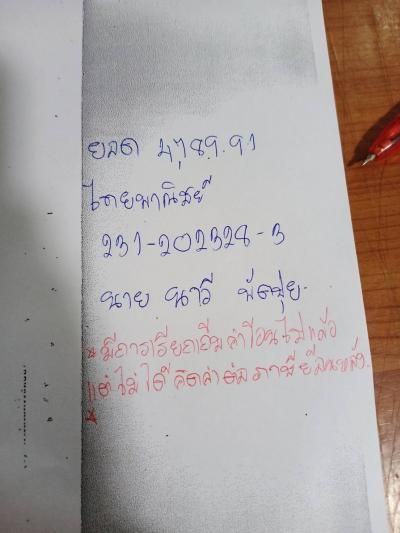 ยอด 4,789.91
ไทยพาณิชย์
231-202328-3
นาย นาวี
มีการเรียกเก็บค่าโอนไปแล้ว
แต่ไม่ได้คิดค่า ภาษีย้อนหลัง